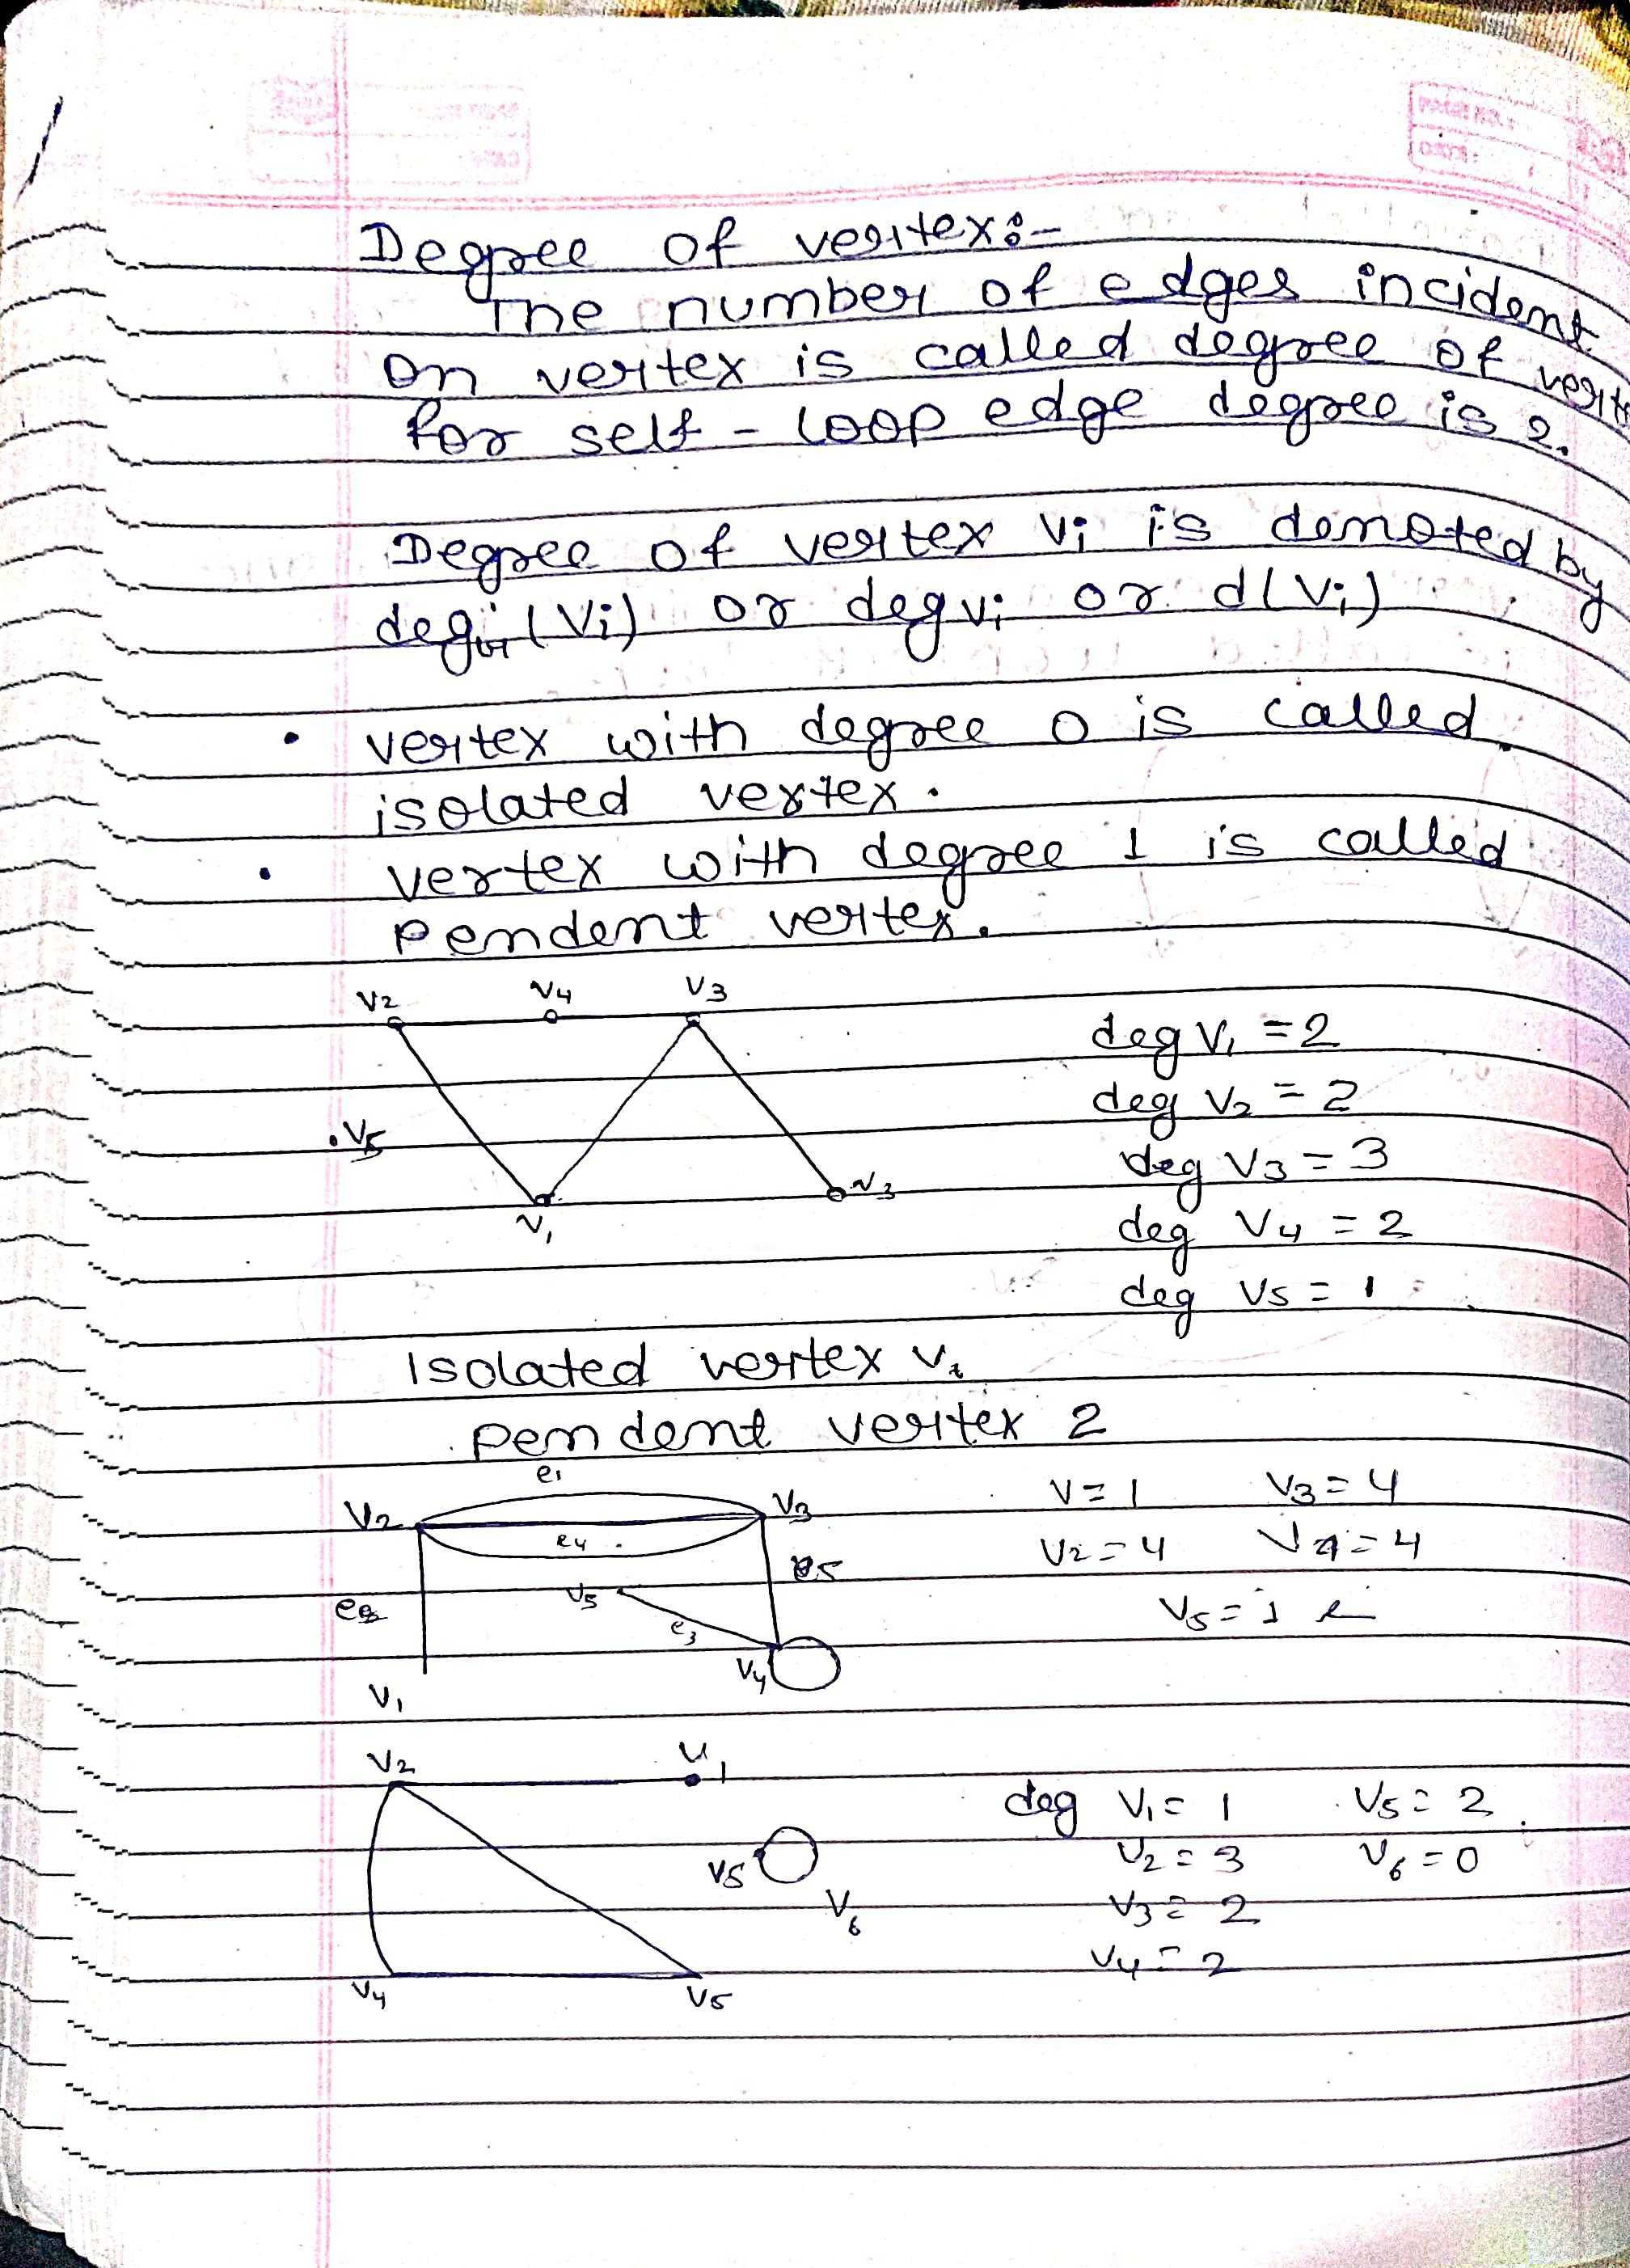 Degree of vertex:-
The number of edges incident
on vertex is called degree of
for self - loop edge degree is 2.
Degree of vertex Vi is denoted by
deg (Vi) or deg vi or d(Vi)
• vertex with degree 0 is called
isolated vertex.
• vertex with degree 1 is called
pendent vertex.
V2 V4 V3
deg V1 = 2
deg V2 = 2
.V5
deg V3 = 3
V3
V1
deg V4 = 2
deg V5 = 1
Isolated vertex
pendent vertex 2
e1
V2 V3
V=1 V3=4
e4
V2=4 V4=4
e5
V5
V5=1
e3
V4
V1
V2 V1
deg V1=1 V5=2
V5
V2=3 V6=0
V6
V3=2
V4=2
V4 V5